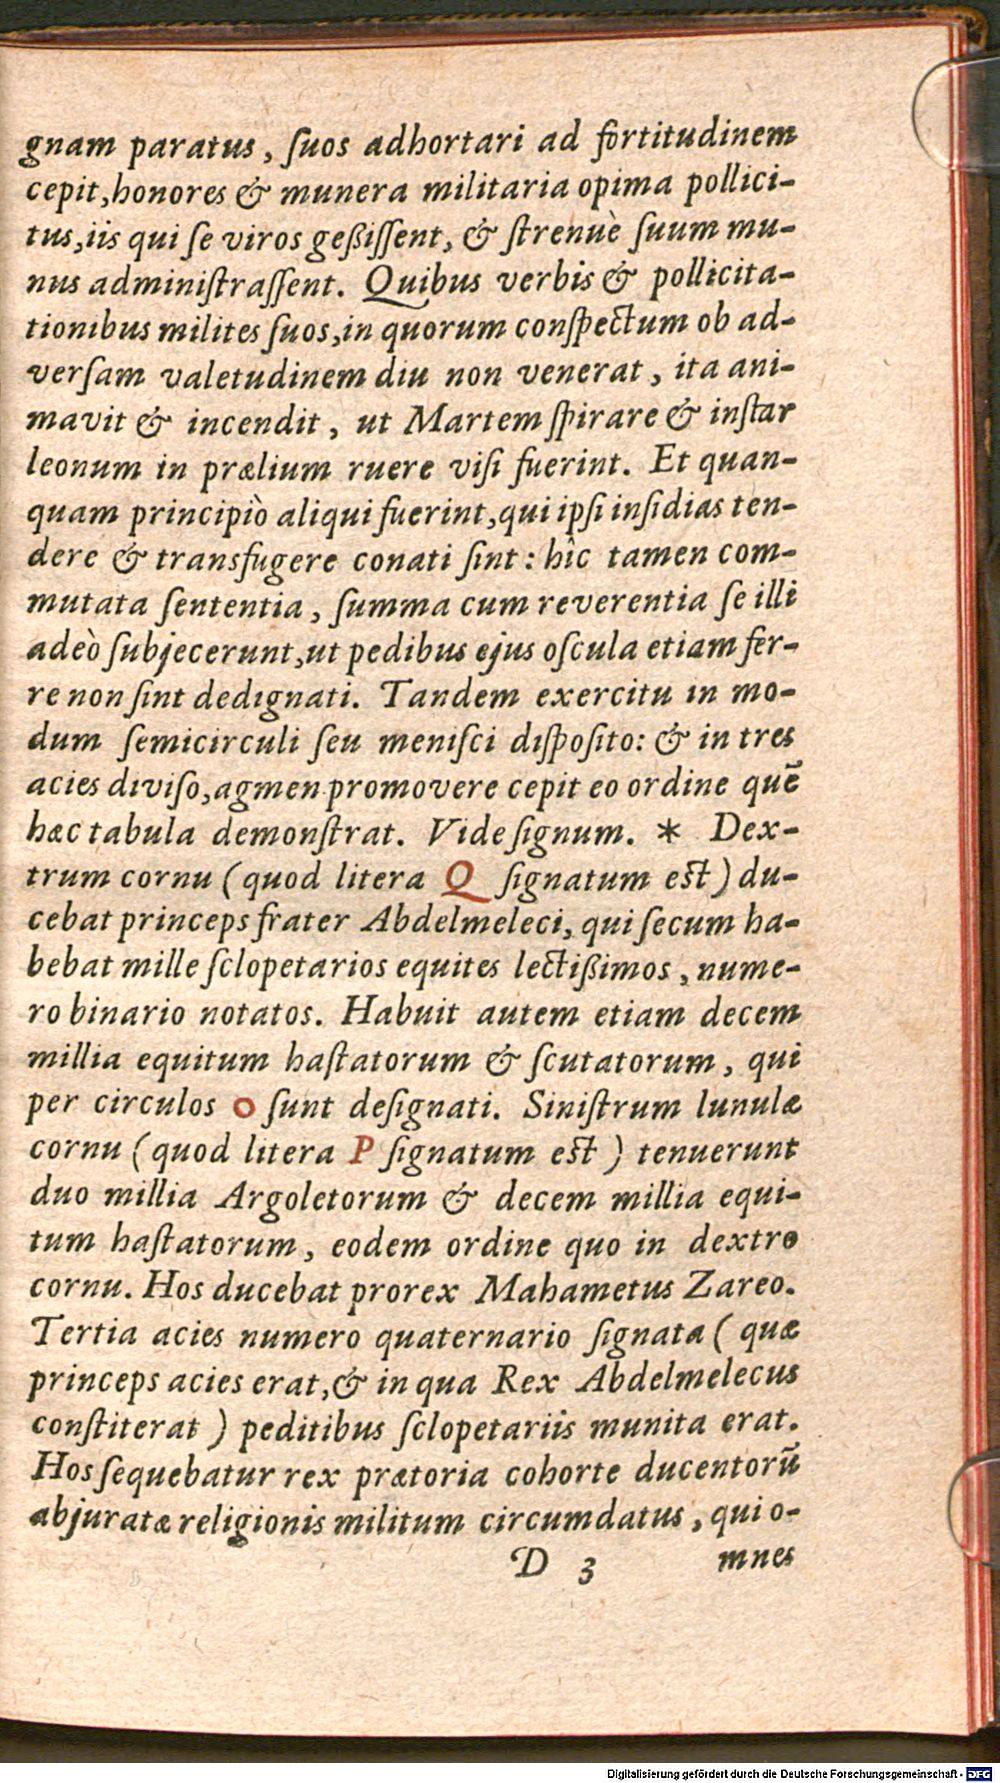 gnam paratus, ſuos adhortari ad fortitudinem
cepit, honores & munera militaria opima pollici-
tus, iis qui ſe viros geßiſſent, & ſtrenuè ſuum mu-
nus adminiſtraſſent. Quibus verbis & pollicita-
tionibus milites ſuos, in quorum conſpectum ob ad-
verſam valetudinem diu non venerat, ita ani-
mavit & incendit, ut Martem ſpirare & inſtar
leonum in prælium ruere viſi fuerint. Et quan-
quam principiò aliqui fuerint, qui ipſi inſidias ten-
dere & transfugere conati ſint: hîc tamen com-
mutata ſententia, ſumma cum reverentia ſe illi
adeò ſubjecerunt, ut pedibus ejus oſcula etiam fer-
re non ſint dedignati. Tandem exercitu in mo-
dum ſemicirculi ſeu meniſci diſpoſito: & in tres
acies diviſo, agmen promovere cepit eo ordine quē
hæc tabula demonſtrat. Vide ſignum. * Dex-
trum cornu (quod litera Q ſignatum eſt) du-
cebat princeps frater Abdelmeleci, qui ſecum ha-
bebat mille ſclopetarios equites lectißimos, nume-
ro binario notatos. Habuit autem etiam decem
millia equitum haſtatorum & ſcutatorum, qui
per circulos o ſunt deſignati. Siniſtrum lunulæ
cornu (quod litera P ſignatum eſt) tenuerunt
duo millia Argoletorum & decem millia equi-
tum haſtatorum, eodem ordine quo in dextro
cornu. Hos ducebat prorex Mahametus Zareo.
Tertia acies numero quaternario ſignata (quæ
princeps acies erat, & in qua Rex Abdelmelecus
conſtiterat) peditibus ſclopetariis munita erat.
Hos ſequebatur rex prætoria cohorte ducentorū
abjuratæ religionis militum circumdatus, qui o-
D 3 mnes
Digitalisierung gefördert durch die Deutsche Forschungsgemeinschaft - DFG